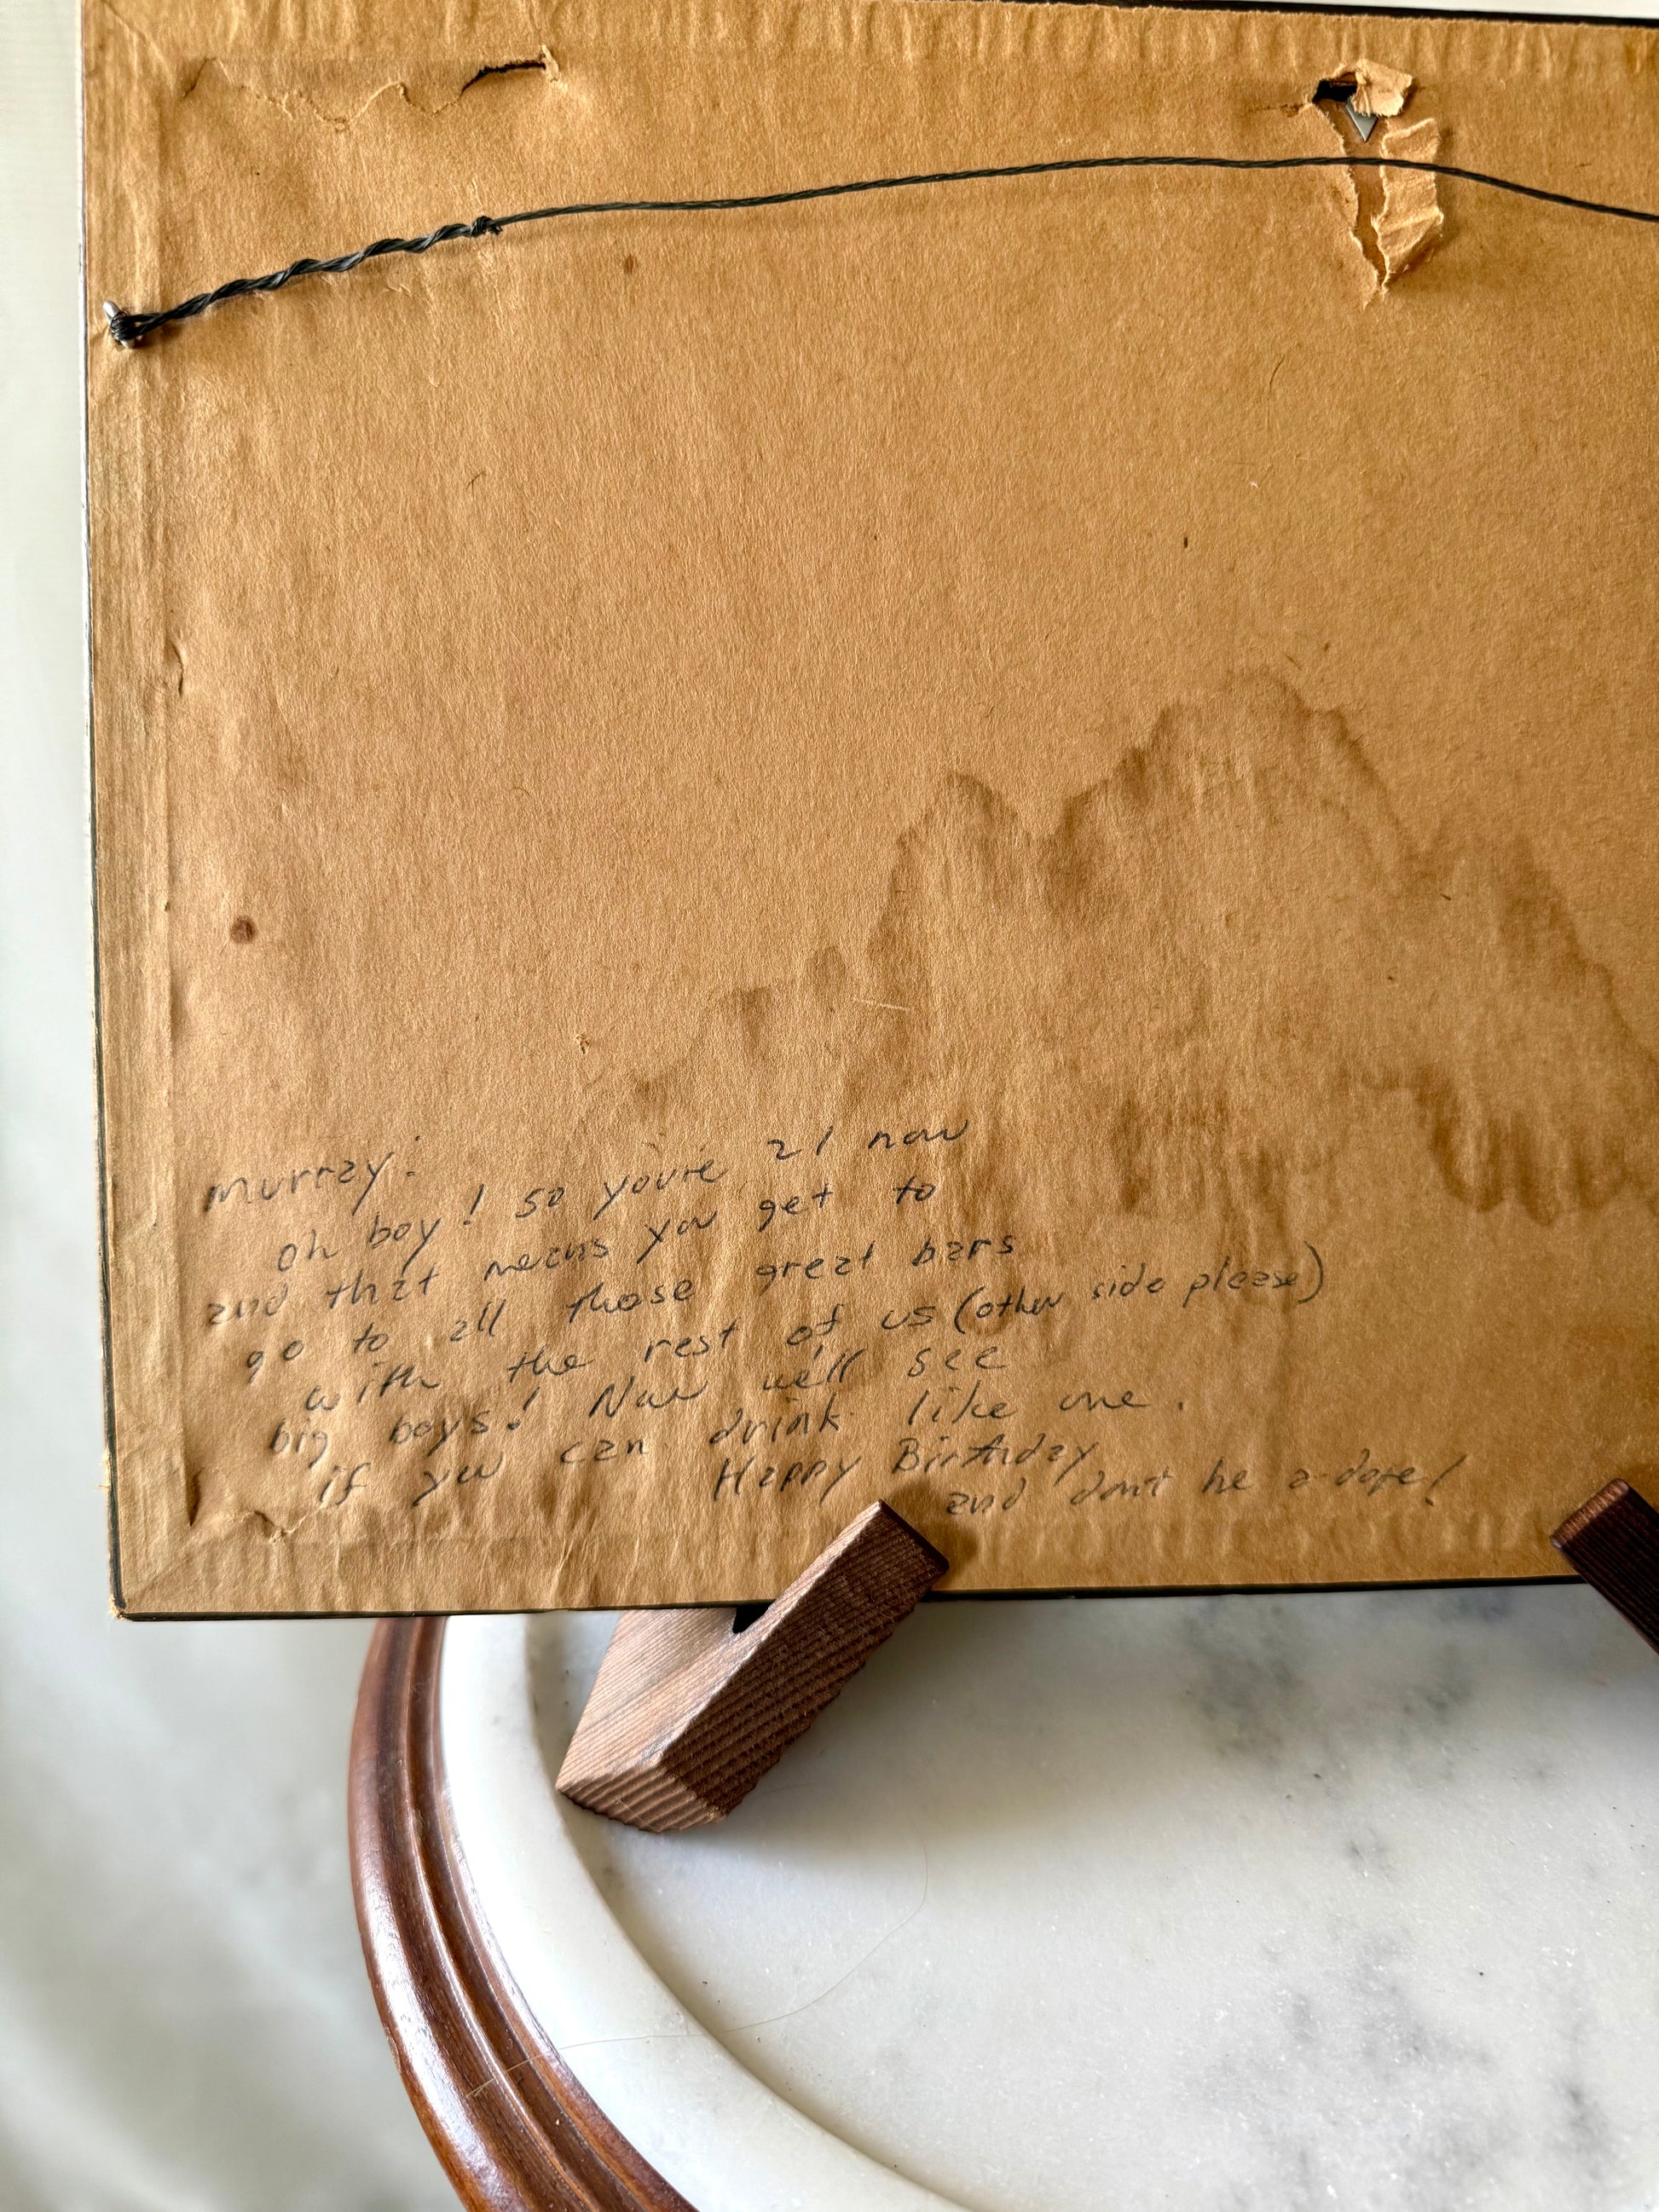 Murray:
oh boy! so you're 21 now
and that means you get to
go to all those great bars
with the rest of us (other side please)
big boys! Now we'll see
if you can drink like one.
Happy Birthday
and don't be a dope!